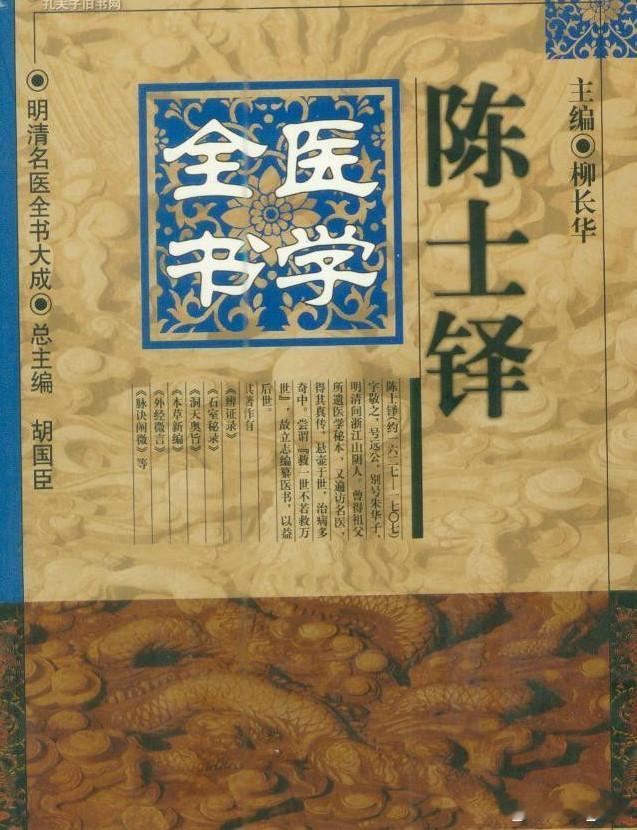 孔夫子旧书网
主编 ◉ 柳长华
陈士铎
医学
全书
陈士铎(约一六二七—一七〇七)
字敬之,号远公,别号朱华子,
明清间浙江山阴人。曾得祖父
所遗医学秘本,又遍访名医,
得其真传,悬壶于世,治病多
奇中。尝谓『救一世不若救万
世』,故立志编纂医书,以益
后世。
其著作有
《辨证录》
《石室秘录》
《洞天奥旨》
《本草新编》
《外经微言》
《脉诀阐微》等
◉ 明清名医全书大成 ◉ 总主编 胡国臣